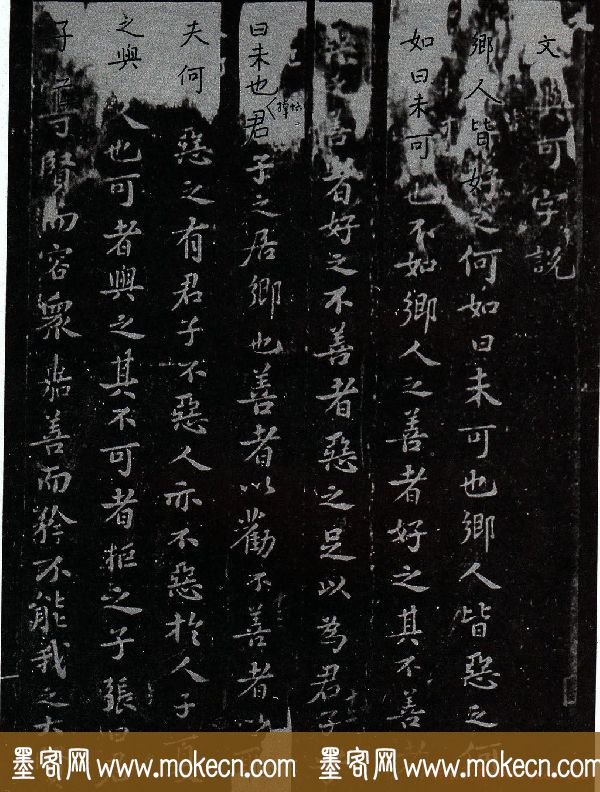 文與可字説
鄉人皆好之何如曰未可也鄉人皆惡之何
如曰未可也不如鄉人之善者好之其不善者
之善者好之不善者惡之足以為君子
曰未也君子之居鄉也善者以勸不善者以
夫何惡之有君子不惡人亦不惡於人子夏
之與人也可者與之其不可者拒之子張曰君
子尊賢而容衆嘉善而矜不能我之大
墨客网 www.mokecn.com 墨客网 www.mokecn.com